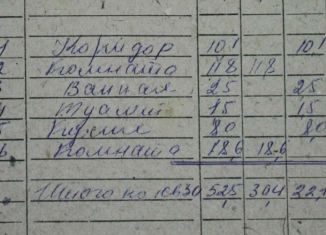 1 Коридор 10,1 10,1
2 Комната 11,8 11,8
3 Ванная 2,5 2,5
4 Туалет 1,5 1,5
5 Кухня 8,0 8,0
6 Комната 18,6 18,6
Итого по кв 30 52,5 30,4 22,1